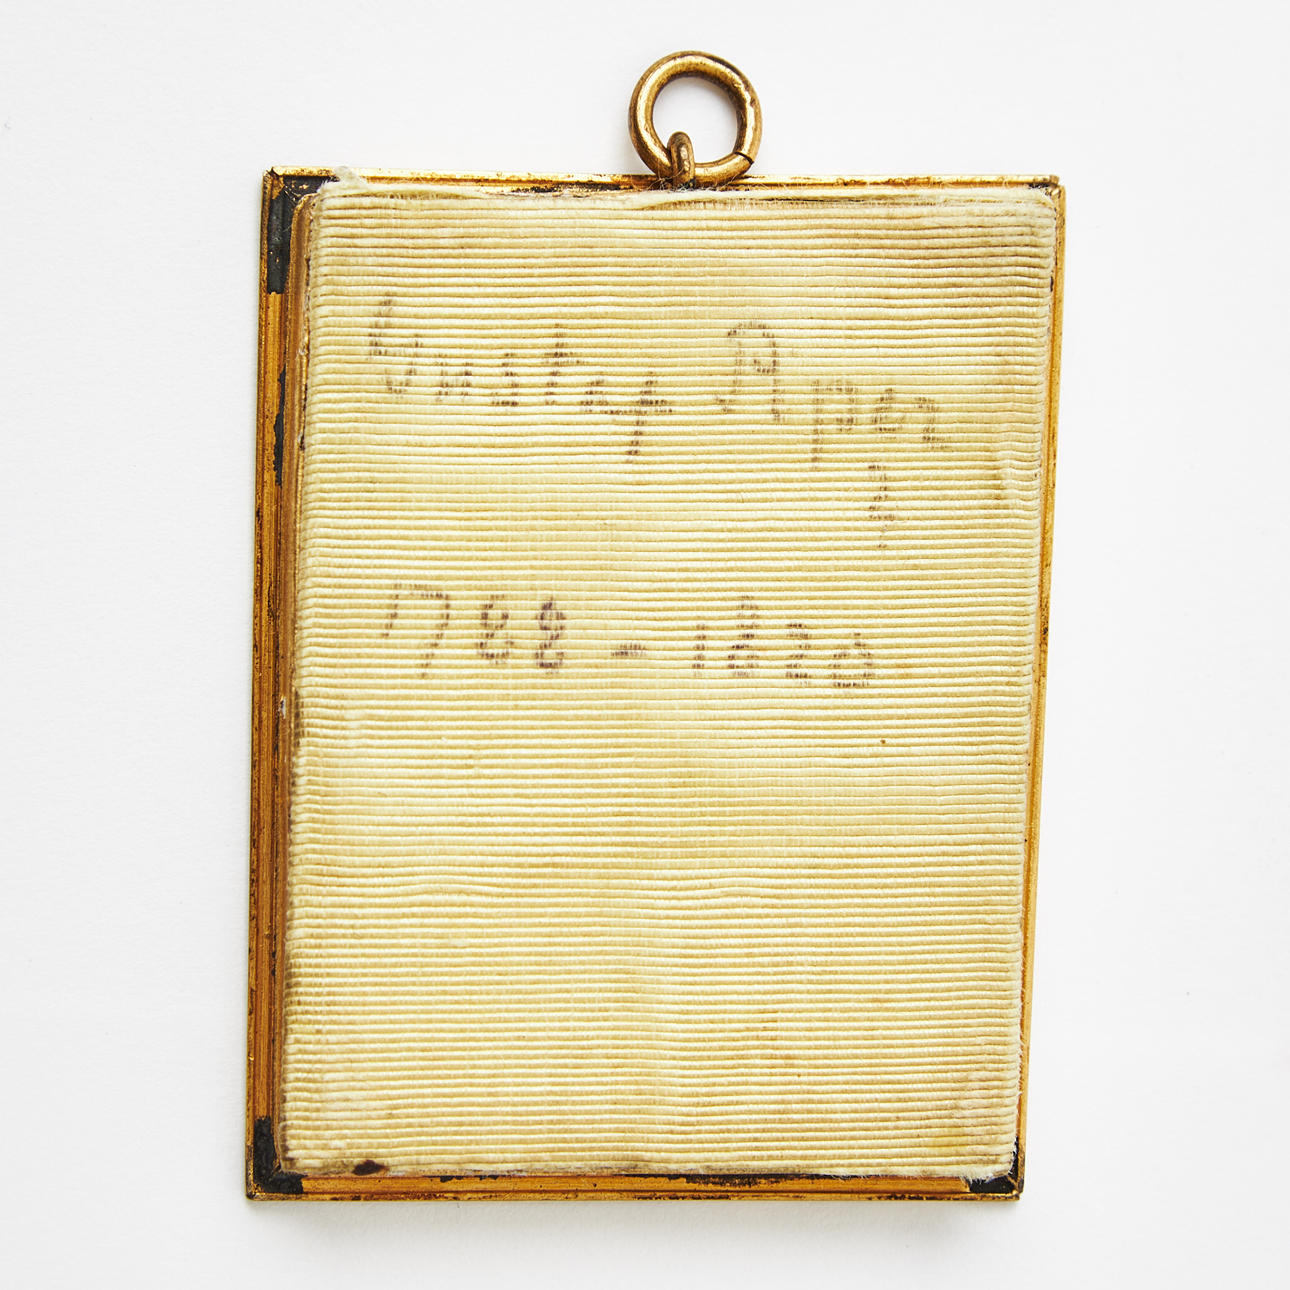 Gustaf Aper
1
1788 - 1820